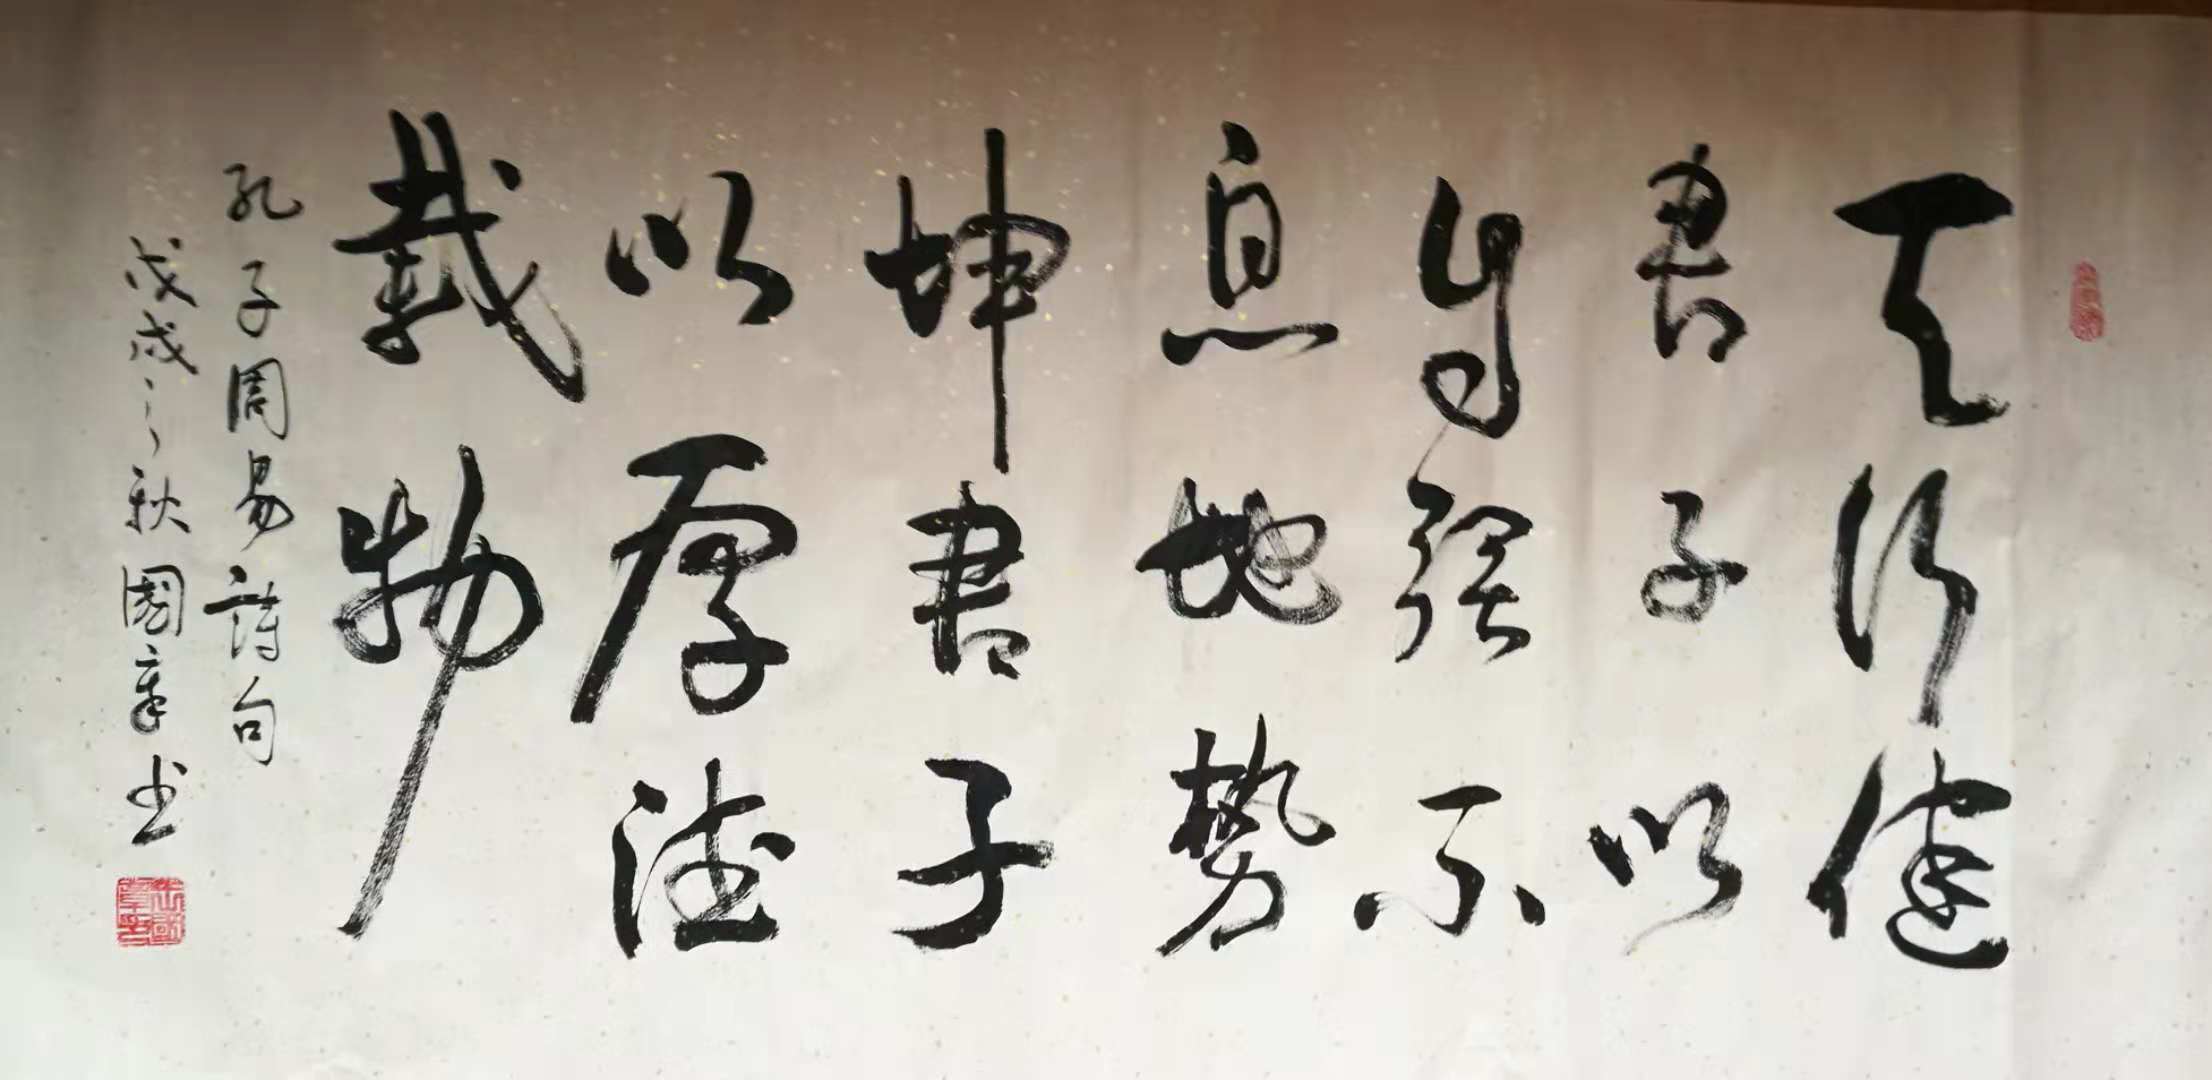 天行健
君子以
自强不
息地势
坤君子
以厚德
载物
孔子周易詩句
戊戌之秋國章书